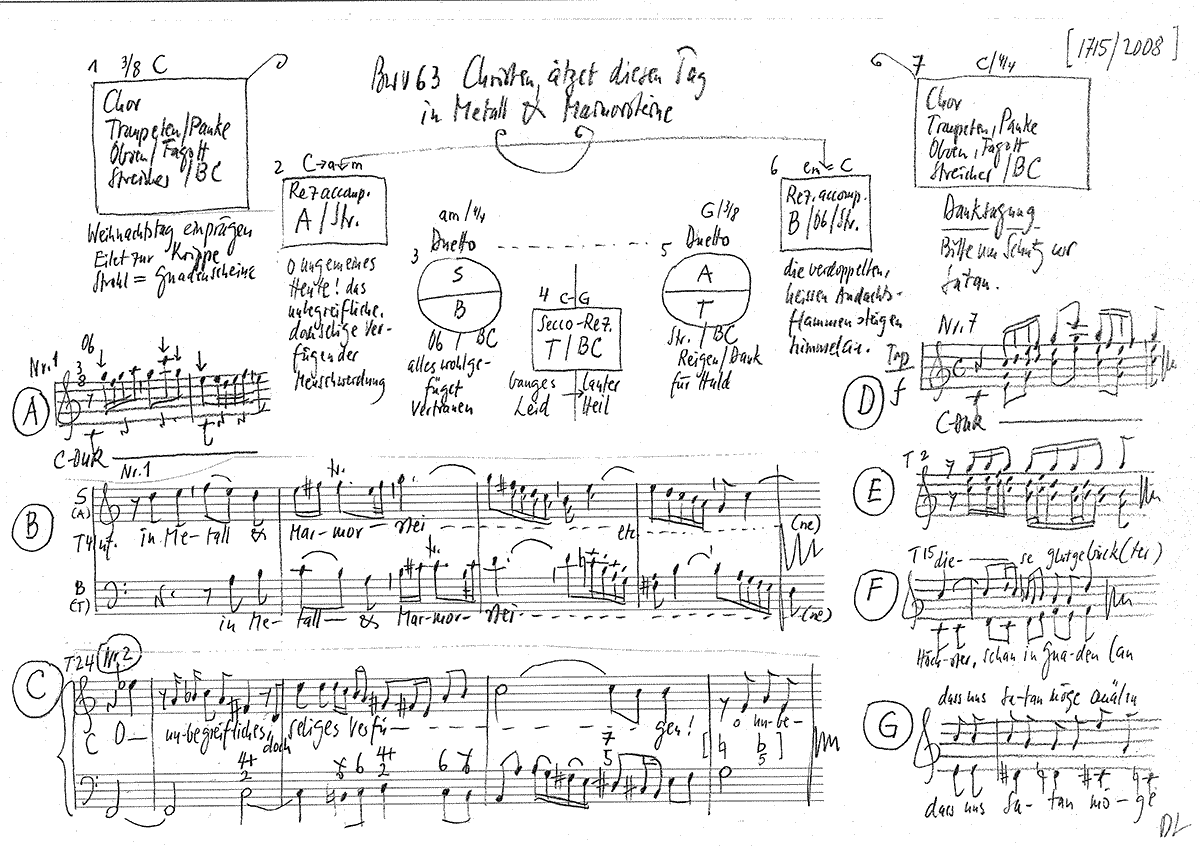 [1715/2008]
BWV 63 Christen, ätzet diesen Tag
in Metall & Marmorsteine
1 3/8 C
Chor
Trompeten/Pauke
Oboen/Fagott
Streicher/BC
Weihnachtstag einprägen
Eilet zur Krippe
Strahl = Gnadenscheine
2 C→a→m
Rez accomp.
A/Str.
O ungemeines
Heute! das
unbegreifliche,
do selige Ver-
fügen der
Menschwerdung
am/4/4
Duetto
3
S
B
Ob / BC
alles wohlge-
füget
Vertrauen
4 C-G
Secco-Rez.
T/BC
banges → lauter
Leid Heil
G/3/8
Duetto
5
A
T
Str./BC
Reigen/Dank
für Huld
6 em → C
Rez. accomp.
B/Ob/Str.
die verdoppelten,
heissen Andachts-
flammen steigen
himmelein.
7 C/4/4
Chor
Trompeten, Pauke
Oboen, Fagott
Streicher/BC
Danksagung
Bitte um Schutz vor
Satan.
Nr. 1 Ob
3
8
A
C-Dur
Nr. 1
B
S
(A)
in Me-tall & Mar-mor-stei etc (ne)
tr.
B
(T)
in Me-tall & Mar-mor-stei (ne)
tr.
C
T24 Nr. 2
C
O un-begreifliches doch seliges Verfü- gen! o un-be-
4+
2
6
4+
2
6
7
5
5
Nr. 7
D
Trp
f
C
C-Dur
E
T2
F
T15 die- se glutgebückt(ter)
Höch-ster, schau in Gna-den (an
G
dass uns Sa-tan möge quälen
dass uns Sa-tan mö-ge
DL